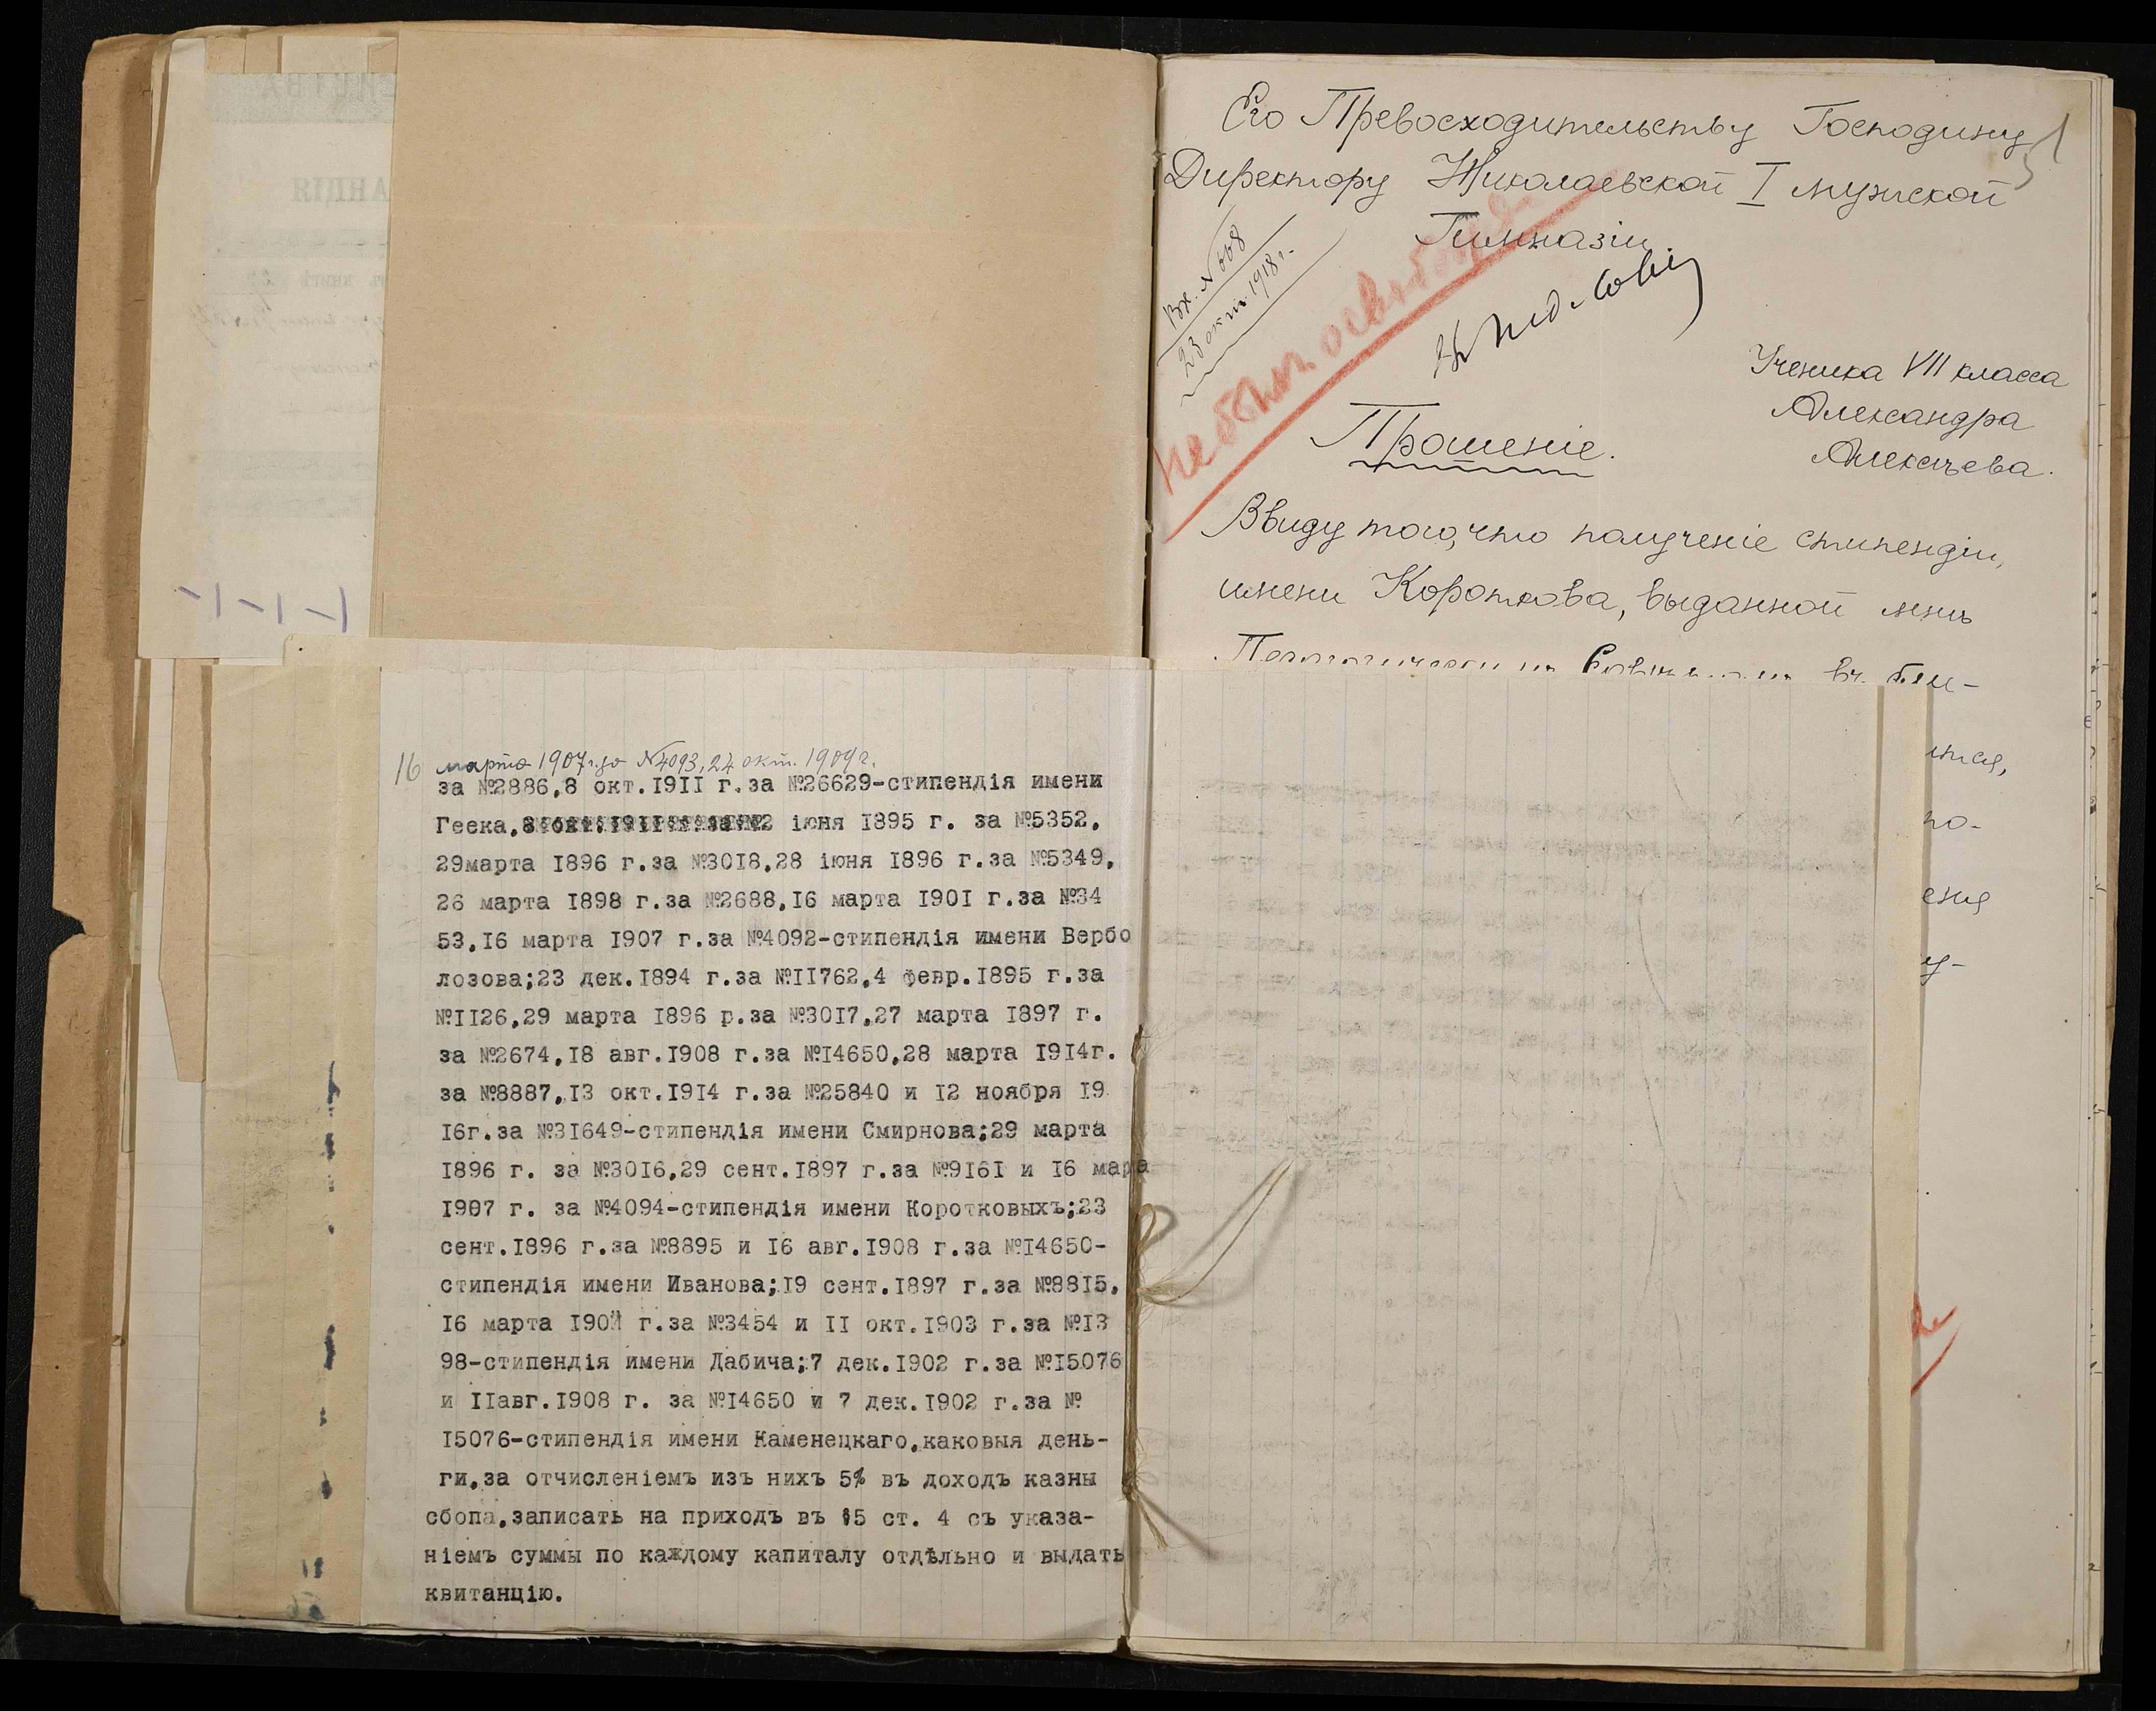 16 марта 1907 г. за №4093, 24 окт. 1909 г.
за №2886,8 окт.1911 г.за №26629-стипендія имени
Геека, 2 іюня 1895 г. за №5352,
29марта 1896 г.за №3018,28 іюня 1896 г.за №5349,
26 марта 1898 г.за №2688,16 марта 1901 г.за №34
53,16 марта 1907 г.за №4092-стипендія имени Вербо
лозова;23 дек.1894 г.за №11762,4 февр.1895 г.за
№1126,29 марта 1896 р.за №3017,27 марта 1897 г.
за №2674,18 авг.1908 г.за №14650,28 марта 1914г.
за №8887,13 окт.1914 г.за №25840 и 12 ноября 19
16г.за №31649-стипендія имени Смирнова;29 марта
1896 г. за №3016,29 сент.1897 г.за №9161 и 16 мара
1907 г. за №4094-стипендія имени Коротковыхъ;23
сент.1896 г.за №8895 и 16 авг.1908 г.за №14650-
стипендія имени Иванова;19 сент.1897 г.за №8815,
16 марта г.за №3454 и 11 окт.1903 г.за №13
98-стипендія имени Дабича;7 дек.1902 г.за №15076
и 11авг.1908 г. за №14650 и 7 дек.1902 г.за №
15076-стипендія имени Каменецкаго,каковыя день-
ги,за отчисленіемъ изъ нихъ 5% въ доходъ казны
сбопа,записать на приходъ въ §5 ст. 4 съ указа-
ніемъ суммы по каждому капиталу отдѣльно и выдать
квитанцію.
Его Превосходительству Господину
Директору Николаевской I мужской
Гимназіи
Вх. № 668
23 окт. 1918 г.
Ученика VII класса
Александра
Алексѣева.
Прошеніе.
Ввиду того, что полученіе стипендіи,
имени Короткова, выданной мнѣ
Педагогическимъ Совѣтомъ въ бли-